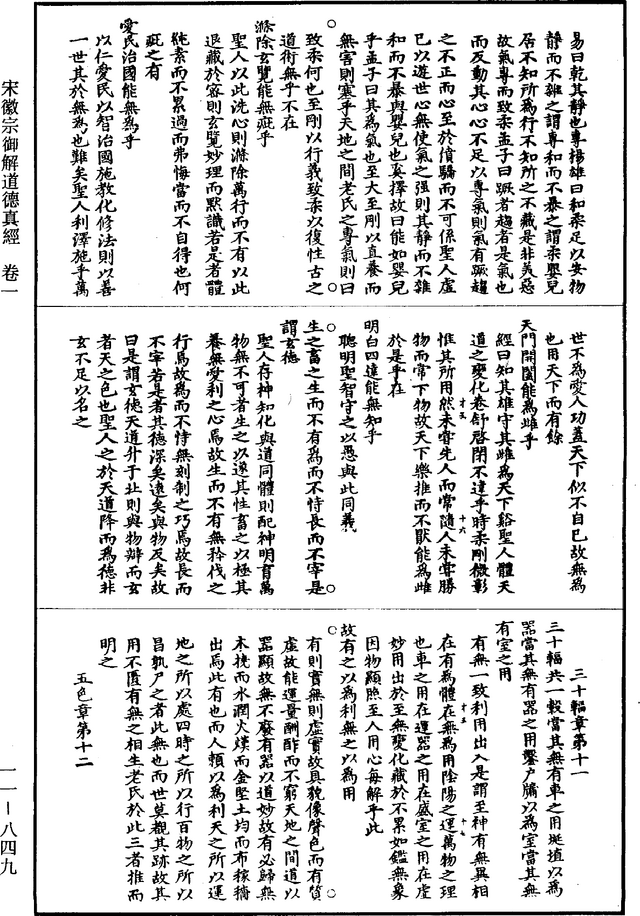 宋徽宗御解道德真經　卷一
易曰乾其靜也專揚雄曰和柔足以安物
靜而不雜之謂專和而不暴之謂柔嬰兒
居不知所為行不知所之不藏是非美惡
故氣專而致柔孟子曰蹶者趨者是氣也
而反動其心心不足以專氣則氣有蹶趨
之不正而心至於僨驕而不可係聖人虛
已以遊世心無使氣之强則其靜而不雜
和而不暴與嬰兒也奚擇故曰能如嬰兒
乎孟子曰其為氣也至大至剛以直養而
無害則塞乎天地之間老氏之專氣則曰
致柔何也至剛以行義致柔以復性古之
道術無乎不在
滌除玄覽能無疵乎
聖人以此洗心則滌除萬行而不有以此
退藏於密則玄覽妙理而默識若是者體
純素而不累過而弗悔當而不自得也何
疵之有
愛民治國能無為乎
以仁愛民以智治國施教化修法則以善
一世其於無為也難矣聖人利澤施乎萬
世不為愛人功蓋天下似不自已故無為
也用天下而有餘
天門開闔能為雌乎
經曰知其雄守其雌為天下谿聖人體天
道之變化卷舒啓閉不違乎時柔剛微彰
惟其所用然未嘗先人而常隨人未嘗勝
物而常下物故天下樂推而不猒能為雌
於是乎在
明白四達能無知乎
聰明聖智守之以愚與此同義
生之畜之生而不有為而不恃長而不宰是
謂玄德
聖人存神知化與道同體則配神明育萬
物無不可者生之以遂其性畜之以極其
養無愛利之心焉故生而不有無矜伐之
行焉故為而不恃無刻制之巧焉故長而
不宰若是者其德深矣遠矣與物反矣故
曰是謂玄德天道升于北則與物辯而玄
者天之色也聖人之於天道降而為德非
玄不足以名之
三十輻章第十一
三十輻共一轂當其無有車之用埏埴以為
器當其無有器之用鑿戶牖以為室當其無
有室之用
有無一致利用出入是謂至神有無異相
在有為體在無為用陰陽之運萬物之理
也車之用在運器之用在盛室之用在虛
妙用出於至無變化藏於不累如鑑無象
因物顯照至人用心每解乎此
故有之以為利無之以為用
有則實無則虛實故具貌像聲色而有質
虛故能運量酬酢而不窮天地之間道以
器顯故無不廢有器以道妙故有必歸無
木撓而水潤火熯而金堅土均而布稼穡
出焉此有也而人賴以為利天之所以運
地之所以處四時之所以行百物之所以
昌孰尸之者此無也而世莫覩其跡故其
用不匱有無之相生老氏於此三者推而
明之
五色章第十二
一一－八四九